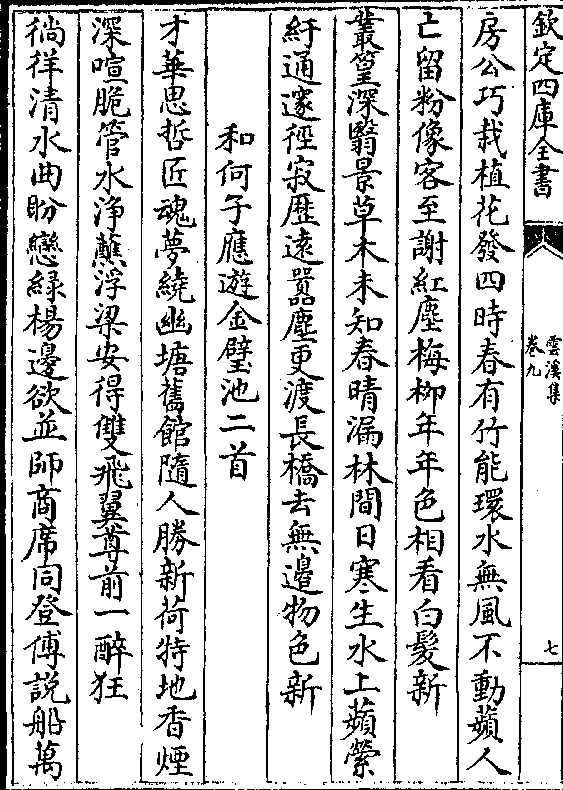 欽定四庫全書
雲溪集
卷九
七
房公巧栽植花發四時春有竹能環水無風不動蘋人
亡留粉像客至謝紅塵梅柳年年色相看白髮新
叢篁深翳景草木未知春晴漏林間日寒生水上蘋縈
紆通邃徑寂歴逺囂塵更渡長橋去無邊物色新
和何子應遊金璧池二首
才華思哲匠魂夢繞幽塘舊館隨人勝新荷特地香煙
深喧脆管水浄蘸浮梁安得雙飛翼尊前一醉狂
徜徉清水曲盼戀緑楊邊欲並師商席同登傅説船萬